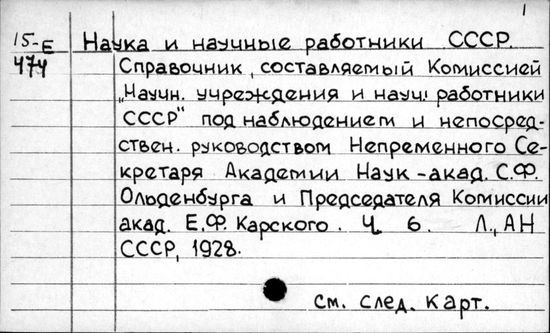 1
15-Е Наука и научные работники СССР.
474 Справочник, составляемый Комиссией
"Научн. учреждения и науч. работники
СССР" под наблюдением и непосред-
ствен. руководством Непременного Се-
кретаря Академии Наук - акад. С.Ф.
Ольденбурга и Председателя Комиссии
акад. Е.Ф. Карского. Ч. 6. Л., АН
СССР, 1928.
см. след. карт.